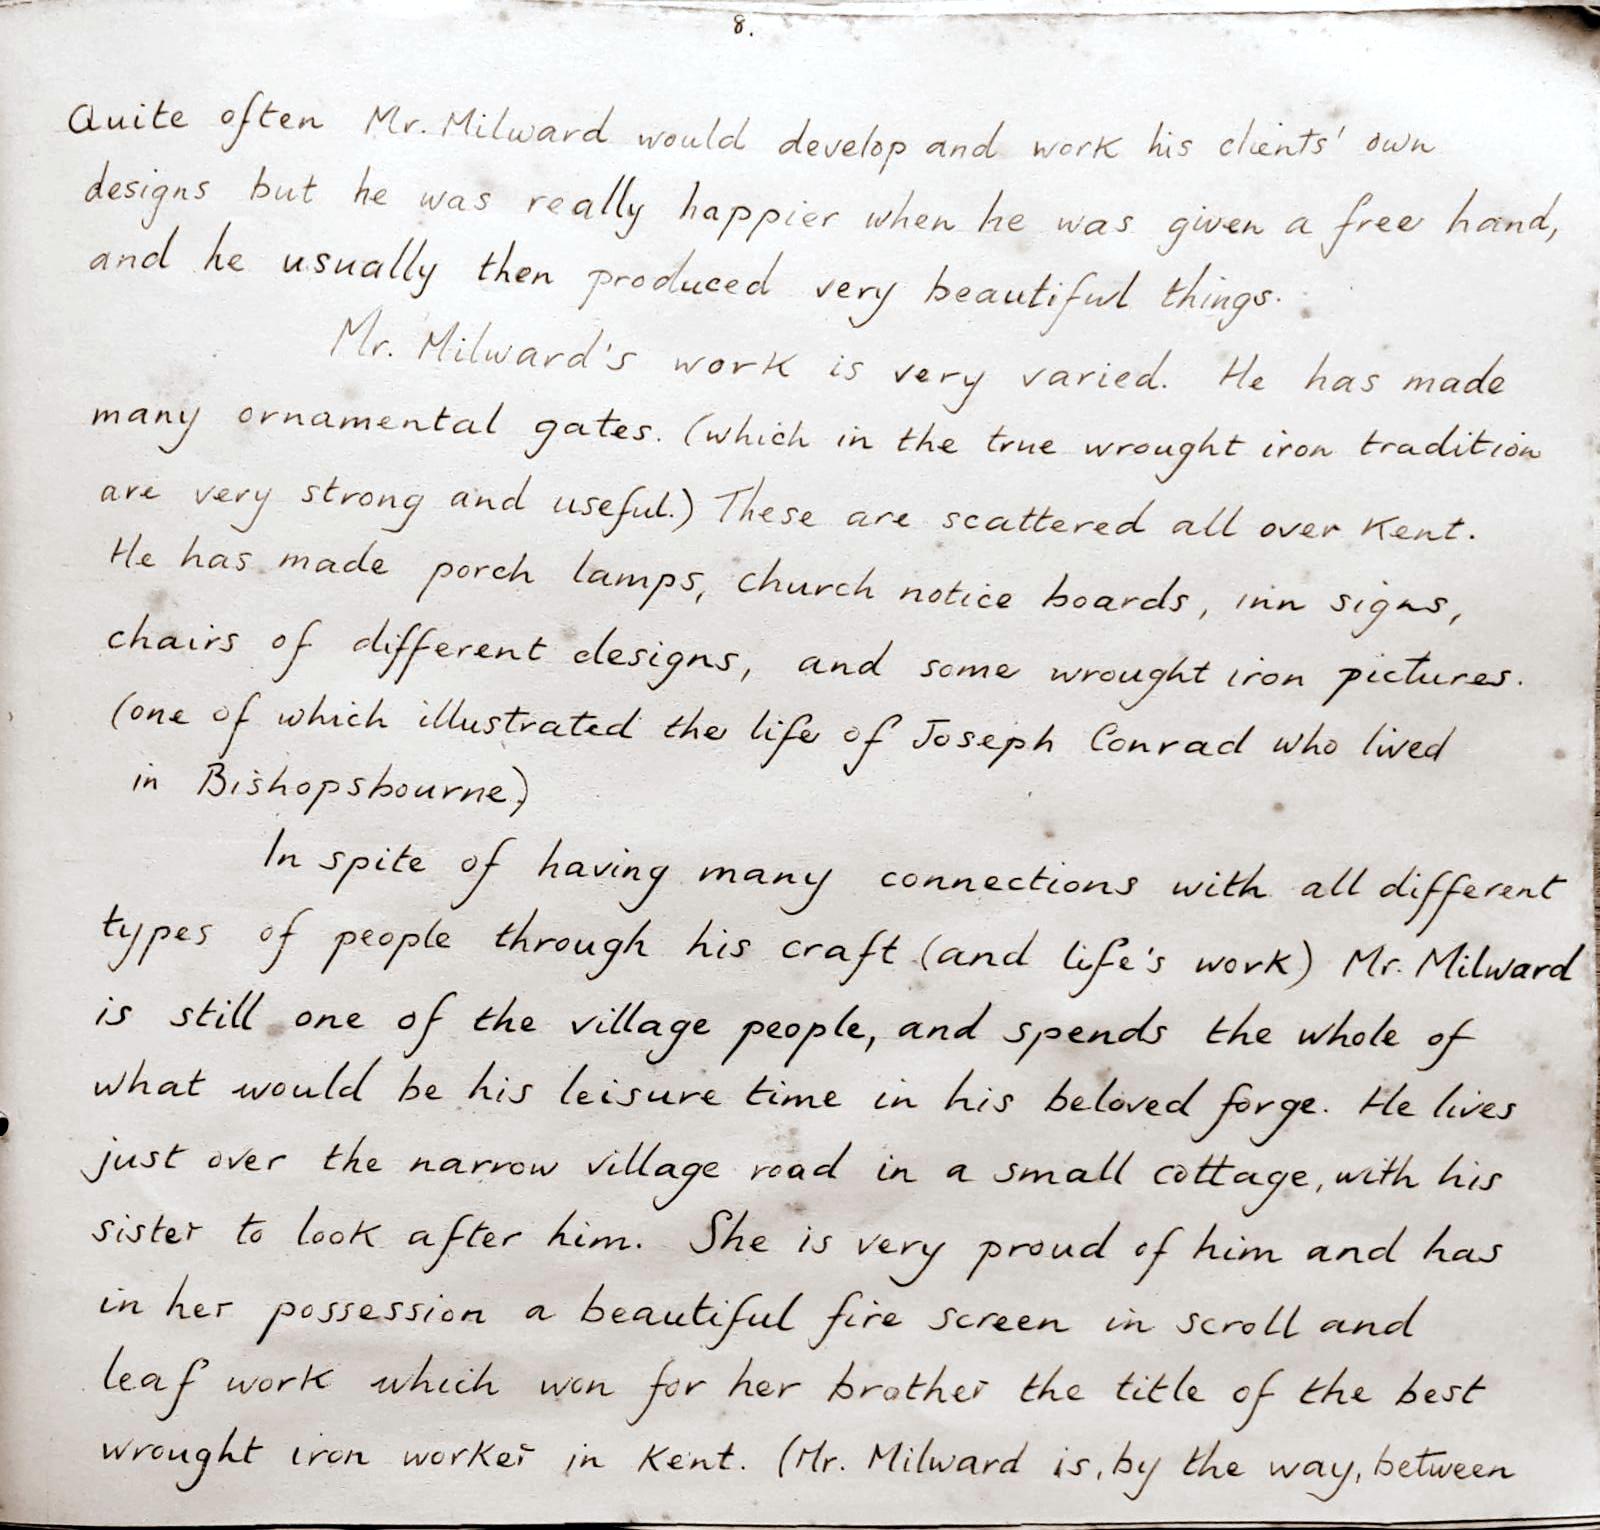 8.
Quite often Mr. Milward would develop and work his clients' own
designs but he was really happier when he was given a free hand,
and he usually then produced very beautiful things.
Mr. Milward's work is very varied. He has made
many ornamental gates. (which in the true wrought iron tradition
are very strong and useful.) These are scattered all over Kent.
He has made porch lamps, church notice boards, inn signs,
chairs of different designs, and some wrought iron pictures.
(one of which illustrated the life of Joseph Conrad who lived
in Bishopsbourne)
In spite of having many connections with all different
types of people through his craft (and life's work) Mr. Milward
is still one of the village people, and spends the whole of
what would be his leisure time in his beloved forge. He lives
just over the narrow village road in a small cottage, with his
sister to look after him. She is very proud of him and has
in her possession a beautiful fire screen in scroll and
leaf work which won for her brother the title of the best
wrought iron worker in Kent. (Mr. Milward is, by the way, between